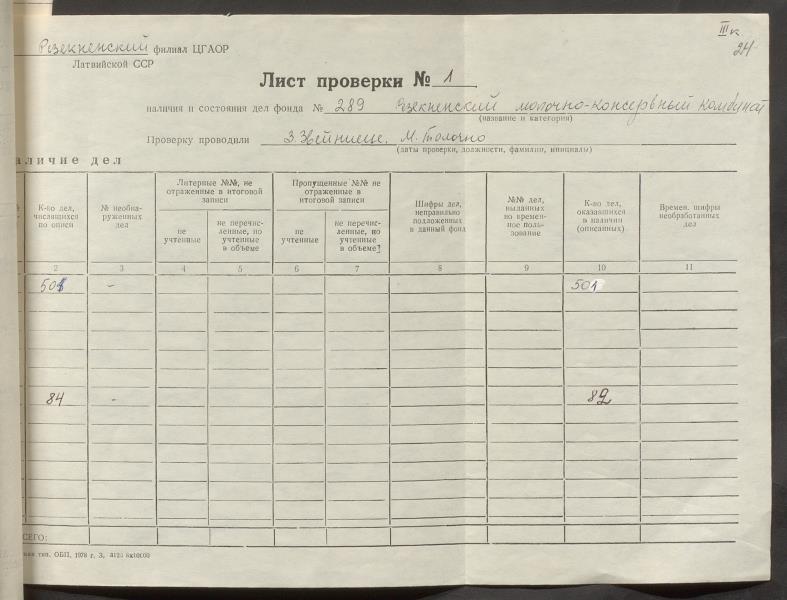 IIIк.
24
Резекненский филиал ЦГАОР
Латвийской ССР
Лист проверки № 1
наличия и состояния дел фонда № 289 Резекненский молочно-консервный комбинат
(название и категория)
Проверку проводили З. Звейниеце, М. Толочно
(даты проверки, должности, фамилии, инициалы)
аличие дел
К-во дел, числящихся по описи
№ необнаруженных дел
Литерные №№, не отраженные в итоговой записи
не учтенные
не перечисленные, но учтенные в объеме
Пропущенные №№ не отраженные в итоговой записи
не учтенные
не перечисленные, но учтенные в объеме]
Шифры дел, неправильно подложенных в данный фонд
№№ дел, выданных во временное пользование
К-во дел, оказавшихся в наличии (описанных)
Времен. шифры необработанных дел
2 3 4 5 6 7 8 9 10 11
501 - 501
84 - 82
СЕГО:
тип. ОБП, 1978 г. З.